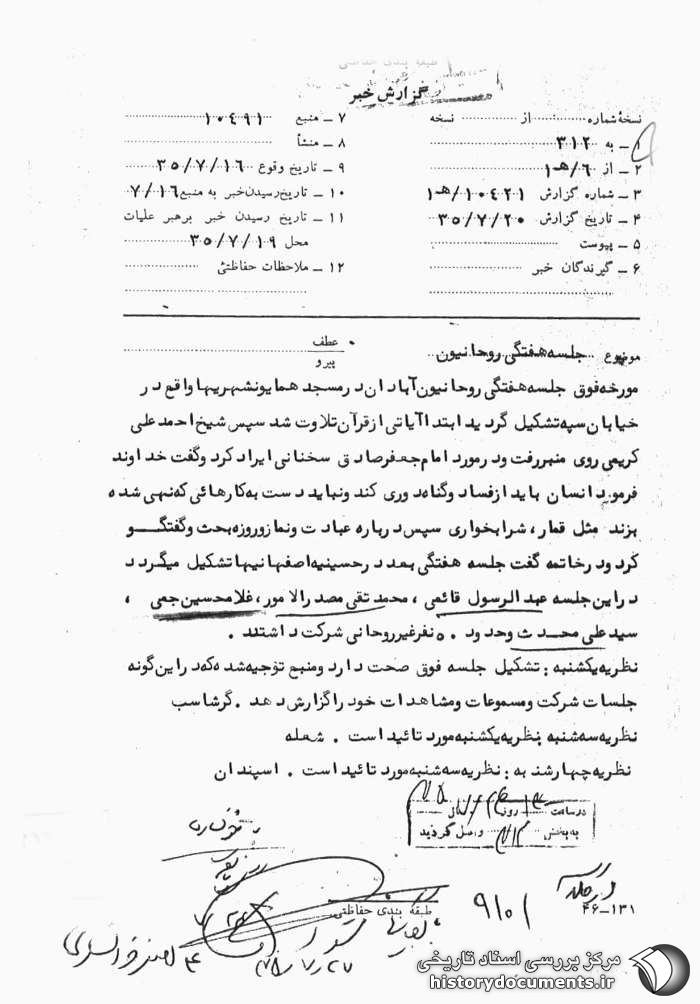 طبقه بندی حفاظتی
گزارش خبر
نسخهٔ شماره از نسخه
۱ – به ۳۱۲
۲ – از ۶/هـ۱
۳ – شماره گزارش ۱۰۴۲۱/هـ۱
۴ – تاریخ گزارش ۳۵/۷/۲۰
۵ – پیوست
۶ – گیرندگان خبر
۷ – منبع ۱۰۴۹۱
۸ – منشأ
۹ – تاریخ وقوع ۳۵/۷/۱۶
۱۰ – تاریخ رسیدن خبر به منبع ۷/۱۶
۱۱ – تاریخ رسیدن خبر برهبر عملیات
محل ۳۵/۷/۱۹
۱۲ – ملاحظات حفاظتی
موضوع جلسه هفتگی روحانیون
عطف
پیرو
مورخه فوق جلسه هفتگی روحانیون آبادان در مسجد همایونشهریها واقع در
خیابان سپه تشکیل گردید ابتدا آیاتی از قرآن تلاوت شد سپس شیخ احمد علی
کریمی روی منبر رفت و در مورد امام جعفر صادق سخنانی ایراد کرد و گفت خداوند
فرمود انسان باید از فساد و گناه دوری کند و نباید دست به کارهائی که نهی شده
بزند مثل قمار ، شرابخواری سپس درباره عبادت و نماز و روزه بحث و گفتگو
کرد و در خاتمه گفت جلسه هفتگی بعد در حسینیه اصفهانیها تشکیل میگردد
در این جلسه عبدالرسول قائمی ، محمد تقی صدرالامور ، غلامحسین جمی ،
سید علی محدث و حدود ۵۰ نفر غیر روحانی شرکت داشتند .
نظریه یکشنبه : تشکیل جلسه فوق صحت دارد و منبع توجیه شده که در این گونه
جلسات شرکت و مسموعات و مشاهدات خود را گزارش دهد . گرشاسب
نظریه سه شنبه نظریه یکشنبه مورد تائید است . شعله
نظریه چهارشنبه : نظریه سه شنبه مورد تائید است . اسپندان
در ساعت روز سال
به بخش ۳۱۲ واصل گردید
۹۱۰۱
۴۶–۱۳۱
طبقه بندی حفاظتی
مرکز بررسی اسناد تاریخی
historydocuments.ir